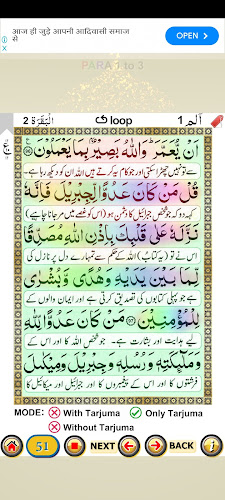 आज ही जुड़े आपनी आदिवासी समाज
से
OPEN
PARA 1 to 3
البقرة 2
loop
الٓمٓ 1
اَنْ يُّعَمَّرَ ؕ وَاللّٰهُ بَصِيْرٌۢ بِمَا يَعْمَلُوْنَ
سے تو نہیں چھڑا سکتی اور جو کام یہ کر رہے ہیں اللہ ان کو دیکھ رہا ہے۔
قُلْ مَنْ كَانَ عَدُوًّا لِّجِبْرِيْلَ فَاِنَّهٗ
کہہ دو کہ جو شخص جبرائیل کا دشمن ہو (اس کو غصے میں مر جانا چاہیے)
نَزَّلَهٗ عَلٰى قَلْبِكَ بِاِذْنِ اللّٰهِ مُصَدِّقًا
اس نے تو (یہ کتاب) اللہ کے حکم سے تمہارے دل پر نازل کی
لِّمَا بَيْنَ يَدَيْهِ وَهُدًى وَّبُشْرٰى
ہے جو پہلی کتابوں کی تصدیق کرتی ہے اور ایمان والوں کے
لِلْمُؤْمِنِيْنَ ﴿۹۷﴾ مَنْ كَانَ عَدُوًّا لِّلّٰهِ
لیے ہدایت اور بشارت ہے۔ جو شخص اللہ کا اور اس کے
وَمَلٰٓئِكَتِهٖ وَرُسُلِهٖ وَجِبْرِيْلَ وَمِيْكٰىلَ
فرشتوں کا اور اس کے پیغمبروں کا اور جبرائیل اور میکائیل کا
MODE: With Tarjuma Only Tarjuma
Without Tarjuma
51 NEXT BACK i